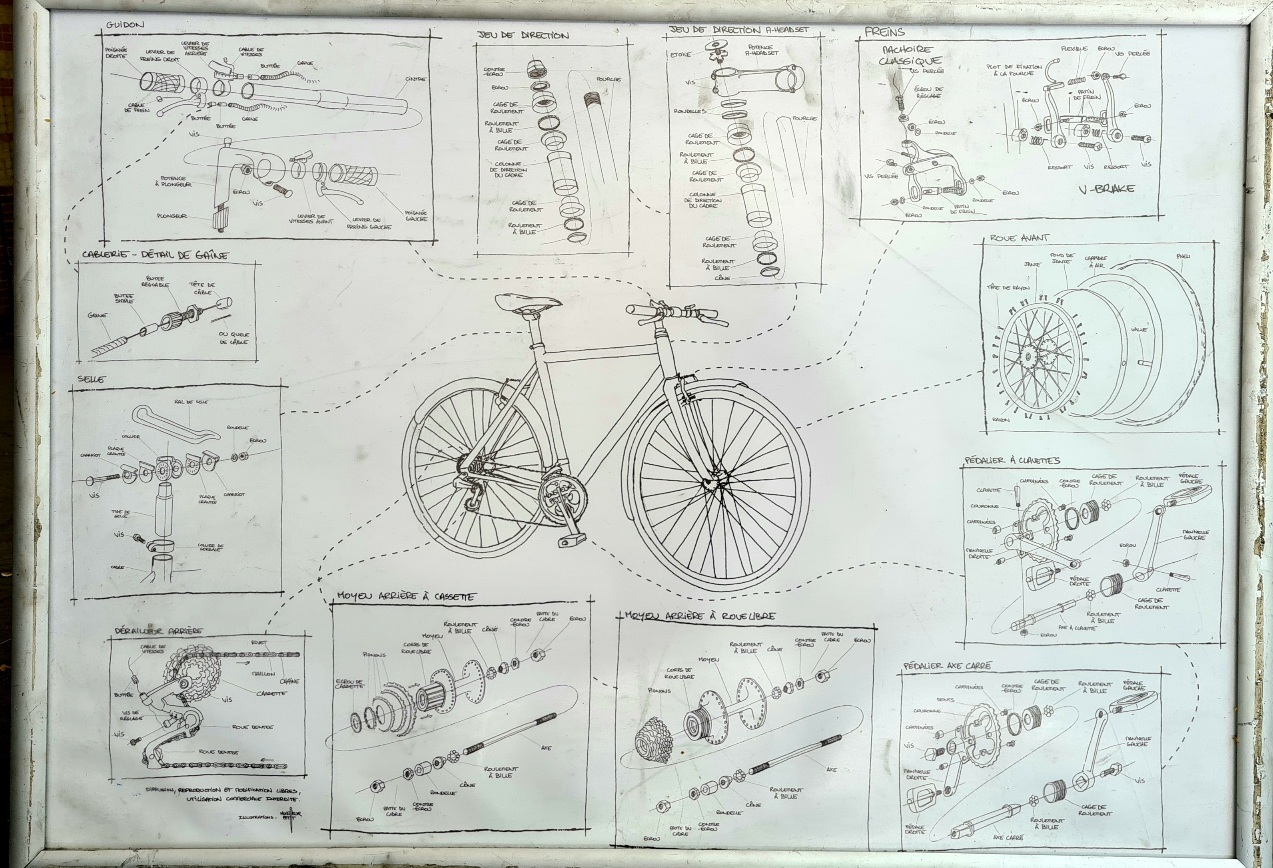 GUIDON
POIGNÉE
DROITE
LEVIER DE
FREINS DROIT
LEVIER DE
VITESSES
ARRIÈRE
CABLE DE
VITESSES
BUTÉE
GAINE
CINTRE
CABLE
DE FREIN
BUTÉE
BUTÉE
GAINE
VIS
POTENCE
À PLONGEUR
ECROU
VIS
PLONGEUR
LEVIER DE
VITESSES AVANT
LEVIER DE
FREINS GAUCHE
POIGNÉE
GAUCHE
JEU DE DIRECTION
CONTRE
ÉCROU
ECROU
CAGE DE
ROULEMENT
ROULEMENT
À BILLE
CAGE DE
ROULEMENT
COLONNE
DE DIRECTION
DU CADRE
CAGE DE
ROULEMENT
ROULEMENT
À BILLE
FOURCHE
JEU DE DIRECTION A-HEADSET
ETOILE
POTENCE
A-HEADSET
VIS
RONDELLES
CAGE DE
ROULEMENT
ROULEMENT
À BILLE
CAGE DE
ROULEMENT
COLONNE
DE DIRECTION
DU CADRE
CAGE DE
ROULEMENT
ROULEMENT
À BILLE
CÔNE
FOURCHE
FREINS
MACHOIRE
CLASSIQUE
VIS PERCÉE
ÉCROU DE
RÉGLAGE
ECROU
RONDELLE
VIS PERCÉE
ECROU
RONDELLE
PATIN
DE FREIN
RONDELLE
ECROU
PLOT DE FIXATION
À LA FOURCHE
FLEXIBLE
ECROU
VIS PERCÉE
ECROU
PATIN
DE FREIN
ECROU
RONDELLE
RESSORT
VIS
RESSORT
VIS
V-BRAKE
CABLERIE - DÉTAIL DE GAÎNE
GAINE
BUTÉE
SIMPLE
BUTÉE
RÉGLABLE
TÊTE DE
CÂBLE
OU QUEUE
DE CÂBLE
ROUE AVANT
TÊTE DE RAYON
JANTE
FOND DE
JANTE
CHAMBRE
À AIR
PNEU
VALVE
RAYON
SELLE
RAIL DE SELLE
COLLIER
PLAQUE
CRANTÉE
CHARIOT
RONDELLE
ECROU
VIS
PLAQUE
CRANTÉE
CHARIOT
TIGE DE
SELLE
VIS
COLLIER DE
SERRAGE
CADRE
PÉDALIER À CLAVETTES
CLAVETTE
CHEMINÉES
CONTRE
ÉCROU
CAGE DE
ROULEMENT
ROULEMENT
À BILLE
PÉDALE
GAUCHE
COURONNE
CHEMINÉES
MANIVELLE
DROITE
PÉDALE
DROITE
ECROU
MANIVELLE
GAUCHE
CLAVETTE
CAGE DE
ROULEMENT
ROULEMENT
À BILLE
AXE À CLAVETTE
ECROU
DÉRAILLEUR ARRIÈRE
CABLE DE
VITESSES
BUTÉE
VIS DE
RÉGLAGE
VIS
RIVET
MAILLON
CHAÎNE
CASSETTE
VIS
ROUE DENTÉE
ROUE DENTÉE
DIFFUSION, REPRODUCTION ET MODIFICATION LIBRES,
UTILISATION COMMERCIALE INTERDITE.
ILLUSTRATIONS:
MOYEU ARRIÈRE À CASSETTE
ECROU DE
CASSETTE
PIGNONS
CORPS DE
ROUE LIBRE
MOYEU
ROULEMENT
À BILLE
CÔNE
CONTRE
ÉCROU
PATTE DU
CADRE
ECROU
AXE
ROULEMENT
À BILLE
CÔNE
RONDELLE
CONTRE
ÉCROU
PATTE DU
CADRE
ECROU
MOYEU ARRIÈRE À ROUE LIBRE
PIGNONS
CORPS DE
ROUE LIBRE
MOYEU
ROULEMENT
À BILLE
CÔNE
CONTRE
ÉCROU
PATTE DU
CADRE
ECROU
AXE
ROULEMENT
À BILLE
CÔNE
RONDELLE
CONTRE
ÉCROU
PATTE DU
CADRE
ECROU
PÉDALIER AXE CARRÉ
CHEMINÉES
CONTRE
ÉCROU
CAGE DE
ROULEMENT
ROULEMENT
À BILLE
PÉDALE
GAUCHE
DENTS
COURONNE
CHEMINÉES
VIS
MANIVELLE
DROITE
PÉDALE
DROITE
MANIVELLE
GAUCHE
VIS
CAGE DE
ROULEMENT
ROULEMENT
À BILLE
AXE CARRÉ